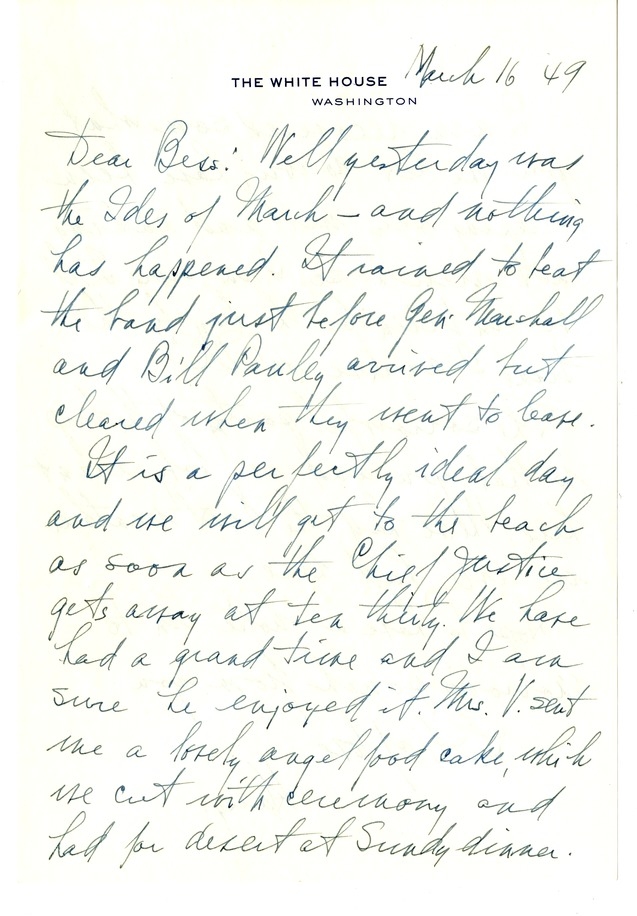 March 16 49
THE WHITE HOUSE
WASHINGTON
Dear Bess: Well yesterday was
the Ides of March – and nothing
has happened. It rained to beat
the band just before Gen. Marshall
and Bill Pauley arrived but
cleared when they went to leave.
It is a perfectly ideal day
and we will get to the beach
as soon as the Chief Justice
gets away at ten thirty. We have
had a grand time and I am
sure he enjoyed it. Mrs. V. sent
me a lovely angel food cake, which
we cut with ceremony and
had for desert at Sundy dinner.